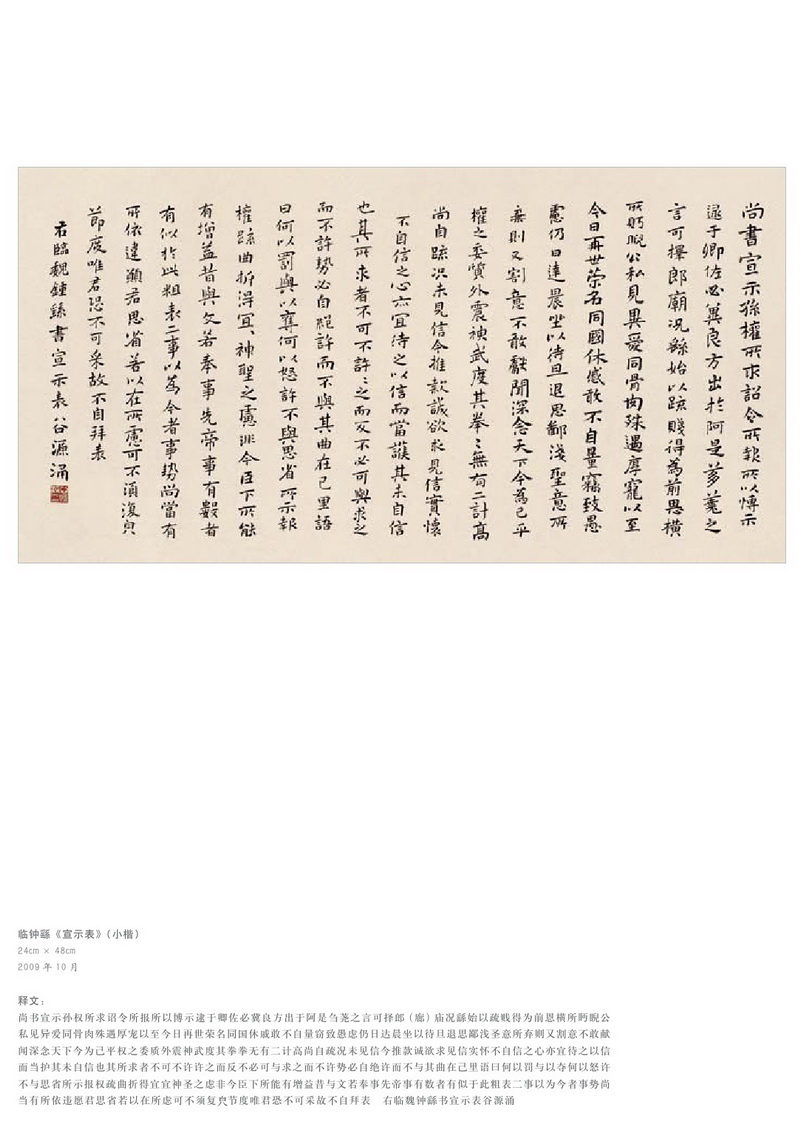 尚書宣示孫權所求詔令所報所以博示
逮于卿佐必冀良方出於阿是芻蕘之
言可擇郎廟況繇始以疏賤得為前恩橫
所眄睨公私見異愛同骨肉殊遇厚寵以至
今日再世榮名同國休慼敢不自量竊致愚
慮仍日達晨坐以待旦退思鄙淺聖意所
棄則又割意不敢獻聞深念天下今為已平
權之委質外震神武度其拳々無有二計高
尚自疏況未見信今推款誠欲求見信實懷
不自信之心亦宜待之以信而當護其未自信
也其所求者不可不許許之而反不必可與求之
而不許勢必自絕許而不與其曲在己里語
曰何以罰與以奪何以怒許不與思省所示報
權疏曲折得宜宜神聖之慮非今臣下所能
有增益昔與文若奉事先帝事有數者
有似於此粗表二事以為今者事勢尚當有
所依違願君思省若以在所慮可不須復皃
節度唯君恐不可采故不自拜表
右臨魏鍾繇書宣示表谷源涌
临钟繇《宣示表》（小楷）
24cm × 48cm
2009 年 10 月
释文：
尚书宣示孙权所求诏令所报所以博示逮于卿佐必冀良方出于阿是刍荛之言可择郎（廊）庙况繇始以疏贱得为前恩横所眄睨公
私见异爱同骨肉殊遇厚宠以至今日再世荣名同国休戚敢不自量窃致愚虑仍日达晨坐以待旦退思鄙浅圣意所弃则又割意不敢献
闻深念天下今为已平权之委质外震神武度其拳拳无有二计高尚自疏况未见信今推款诚欲求见信实怀不自信之心亦宜待之以信
而当护其未自信也其所求者不可不许许之而反不必可与求之而不许势必自绝许而不与其曲在己里语曰何以罚与以夺何以怒许
不与思省所示报权疏曲折得宜宜神圣之虑非今臣下所能有增益昔与文若奉事先帝事有数者有似于此粗表二事以为今者事势尚
当有所依违愿君思省若以在所虑可不须复皃节度唯君恐不可采故不自拜表　右临魏钟繇书宣示表谷源涌